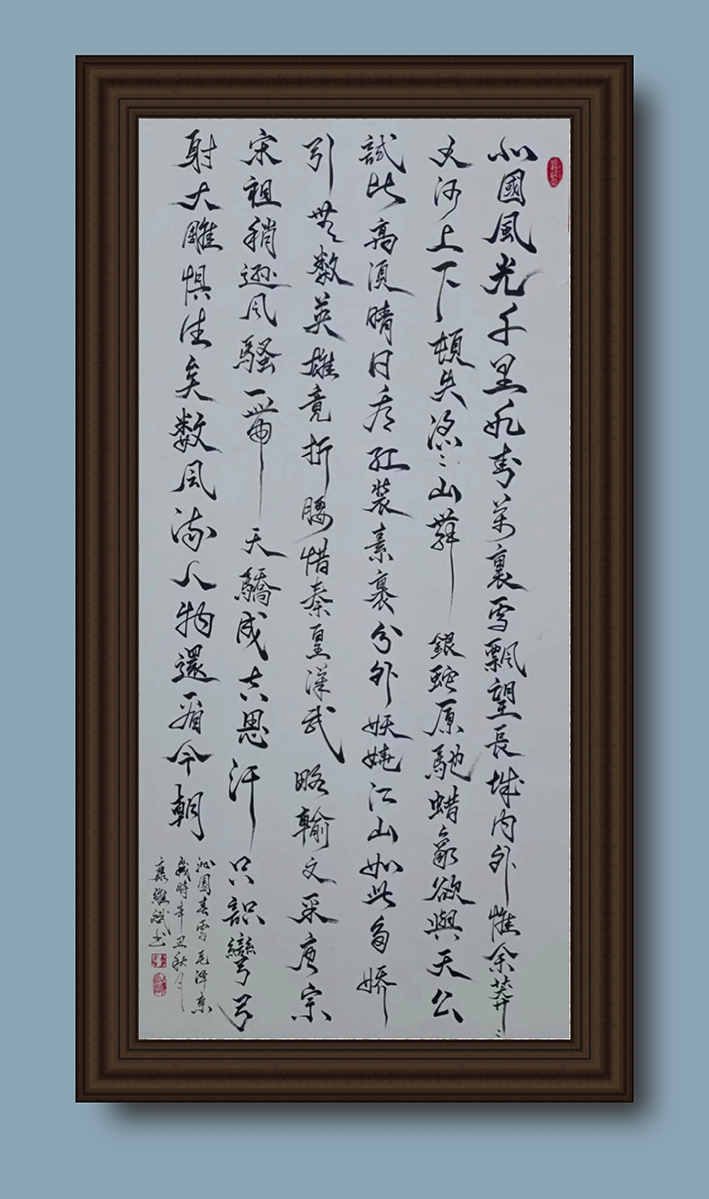 北國風光千里冰封萬裏雪飄望長城内外惟余莽々
大河上下頓失滔々山舞銀蛇原馳蜡象欲與天公
試比高須晴日看紅装素裹分外妖娆江山如此多娇
引無数英雄竟折腰惜秦皇漢武略輸文采唐宗
宋祖稍逊風騷一帶天驕成吉思汗只識彎弓
射大雕惧往矣数風流人物還看今朝
沁園春雪毛澤東
歲時辛丑秋月
康維斌书